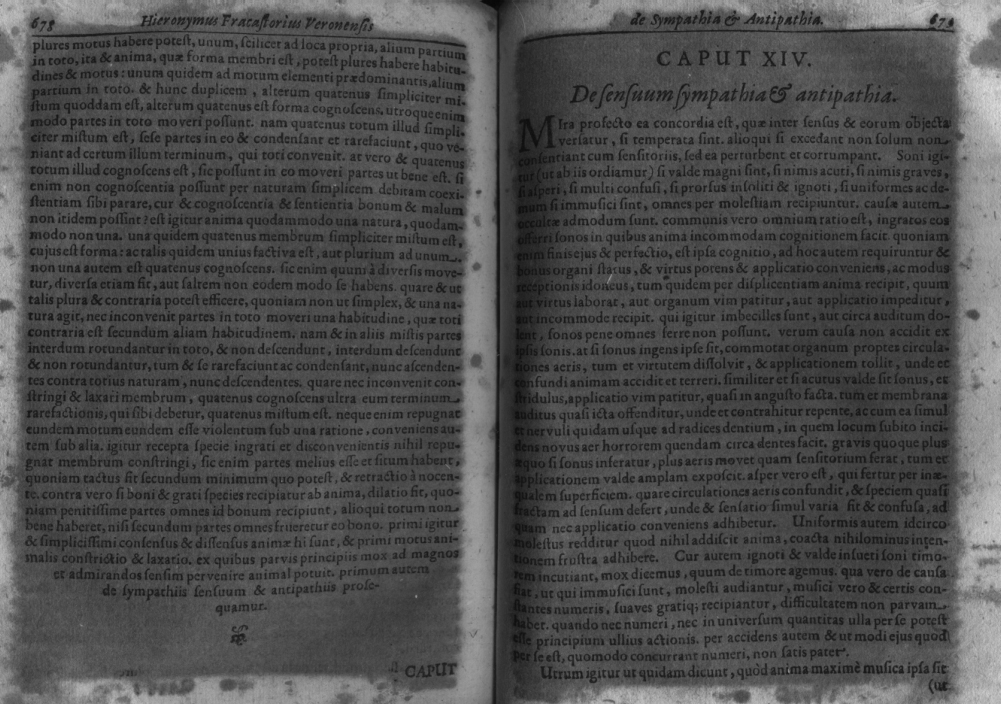 678 Hieronymus Fracastorius Veronensis
plures motus habere potest, unum, scilicet ad loca propria, alium partium
in toto, ita & anima, quæ forma membri est, potest plures habere habitu-
dines & motus: unum quidem ad motum elementi prædominantis, alium
partium in toto. & hunc duplicem, alterum quatenus simpliciter mi-
stum quoddam est, alterum quatenus est forma cognoscens. utroque enim
modo partes in toto moveri possunt. nam quatenus totum illud simpli-
citer mistum est, sese partes in eo & condensant et rarefaciunt, quo ve-
niant ad certum illum terminum, qui toti convenit. at vero & quatenus
totum illud cognoscens est, sic possunt in eo moveri partes ut bene est. si
enim non cognoscentia possunt per naturam simplicem debitam coexi-
stentiam sibi parare, cur & cognoscentia & sentientia bonum & malum
non itidem possint? est igitur anima quodammodo una natura, quodam-
modo non una. una quidem quatenus membrum simpliciter mistum est,
cujus est forma: ac talis quidem unius factiva est, aut plurium ad unum.
non una autem est quatenus cognoscens. sic enim quum à diversis move-
tur, diversa etiam fit, aut saltem non eodem modo se habens. quare & ut
talis plura & contraria potest efficere, quoniam non ut simplex, & una na-
tura agit, nec inconvenit partes in toto moveri una habitudine, quæ toti
contraria est secundum aliam habitudinem. nam & in aliis mistis partes
interdum rotundantur in toto, & non descendunt, interdum descendunt
& non rotundantur, tum & se rarefaciunt ac condensant, nunc ascenden-
tes contra totius naturam, nunc descendentes. quare nec inconvenit con-
stringi & laxari membrum, quatenus cognoscens ultra eum terminum
rarefactionis, qui sibi debetur, quatenus mistum est. neque enim repugnat
eundem motum eundem esse violentum sub una ratione, conveniens au-
tem sub alia. igitur recepta specie ingrati et disconvenientis nihil repu-
gnat membrum constringi, sic enim partes melius esse et situm habent,
quoniam tactus sit secundum minimum quo potest, & retractio à nocen-
te. contra vero si boni & grati species recipiatur ab anima, dilatio fit, quo-
niam penitissime partes omnes id bonum recipiunt, alioqui totum non
bene haberet, nisi secundum partes omnes frueretur eo bono. primi igitur
& simplicissimi consensus & dissensus animæ hi sunt, & primi motus ani-
malis constrictio & laxatio. ex quibus parvis principiis mox ad magnos
et admirandos sensim pervenire animal potuit. primum autem
de sympathiis sensuum & antipathiis prose-
quamur.
CAPUT
de Sympathia & Antipathia. 679
CAPUT XIV.
De sensuum sympathia & antipathia.
MIra profecto ea concordia est, quæ inter sensus & eorum objecta
versatur, si temperata sint. alioqui si excedant non solum non
consentiant cum sensitoriis, sed ea perturbent et corrumpant. Soni igi-
tur (ut ab iis ordiamur) si valde magni sint, si nimis acuti, si nimis graves,
si asperi, si multi confusi, si prorsus insoliti & ignoti, si uniformes ac de-
mum si immusici sint, omnes per molestiam recipiuntur. causæ autem
occultæ admodum sunt. communis vero omnium ratio est, ingratos eos
offerri sonos in quibus anima incommodam cognitionem facit. quoniam
enim finis ejus & perfectio, est ipsa cognitio, ad hoc autem requiruntur &
bonus organi status, & virtus potens & applicatio conveniens, ac modus
receptionis idoneus, tum quidem per displicentiam anima recipit, quum
aut virtus laborat, aut organum vim patitur, aut applicatio impeditur,
aut incommode recipit. qui igitur imbecilles sunt, aut circa auditum do-
lent, sonos pene omnes ferre non possunt. verum causa non accidit ex
ipsis sonis. at si sonus ingens ipse sit, commotat organum propter circula-
tiones aeris, tum et virtutem dissolvit, & applicationem tollit, unde et
confundi animam accidit et terreri. similiter et si acutus valde sit sonus, et
stridulus, applicatio vim patitur, quasi in angusto facta. tum et membrana
auditus quasi icta offenditur, unde et contrahitur repente, ac cum ea simul
et nervuli quidam usque ad radices dentium, in quem locum subito inci-
dens novus aer horrorem quendam circa dentes facit. gravis quoque plus
æquo si sonus inferatur, plus aeris movet quam sensitorium ferat, tum et
applicationem valde amplam exposcit. asper vero est, qui fertur per inæ-
qualem superficiem. quare circulationes aeris confundit, & speciem quasi
fractam ad sensum defert, unde & sensatio simul varia fit & confusa, ad
quam nec applicatio conveniens adhibetur. Uniformis autem idcirco
molestus redditur quod nihil addiscit anima, coacta nihilominus inten-
tionem frustra adhibere. Cur autem ignoti & valde insueti soni timo-
rem incutiant, mox dicemus, quum de timore agemus. qua vero de causa
fiat, ut qui immusici sunt, molesti audiantur, musici vero & certis con-
stantes numeris, suaves gratiq; recipiantur, difficultatem non parvam
habet. quando nec numeri, nec in universum quantitas ulla per se potest
esse principium ullius actionis. per accidens autem & ut modi ejus quod
per se est, quomodo concurrant numeri, non satis patet.
Utrum igitur ut quidam dicunt, quòd anima maximè musica ipsa sit
(ut